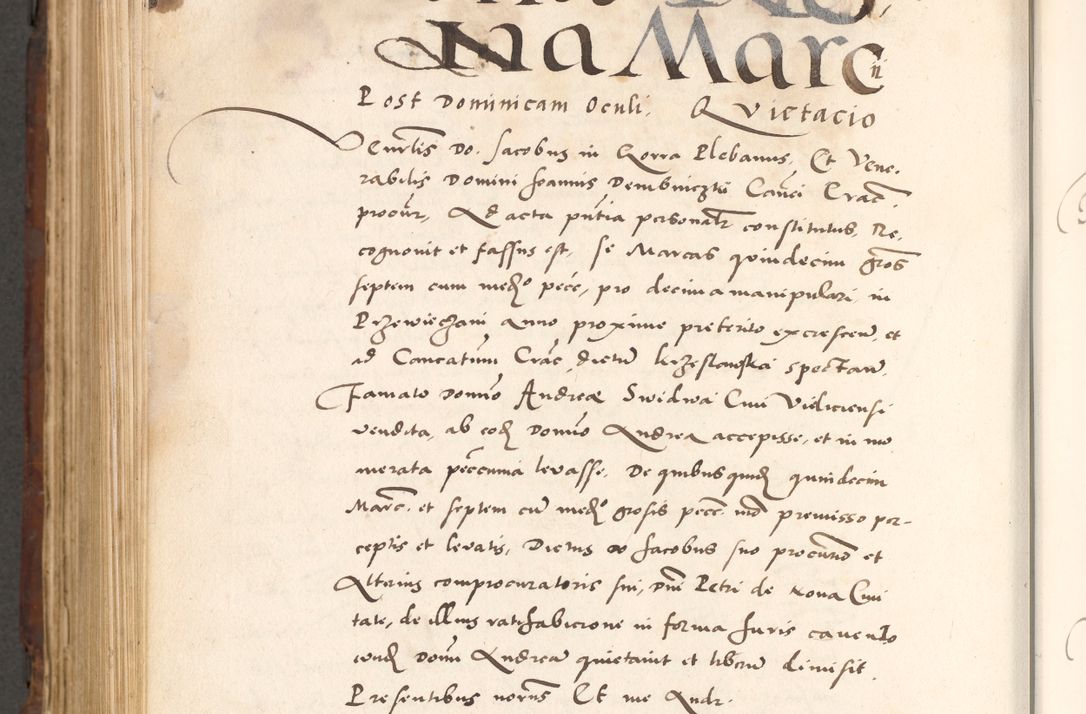 na Marcii
Post Dominicam Oculi. Quietacio
Venerlis Do. Jacobus in Gorra Plebanus, Et Vene-
rabilis Domini Joannis Dembinczki Canci Crac.
procur, Ad acta pntia personalr constitutus, Re-
cognovit et fassus est, se Marcas quindecim gros
septem cum medo pecc, pro decima manipulari in
Przewieczani anno proxime preterito excrescen, et
ad Cancatum Crac, dictu krzeslowski spectan,
Famato Domno Andreae Swidwa Civi Vieliciensi
vendita, ab eod Domno Andrea accepisse, et in nu
merata peccunia levasse, De quibus quid quindecim
Marc. et septem cu medo grosis pecc mo premisso per-
ceptis et levatis, Dictus Do Jacobus suo procurio et
Alterius comprocuratoris sui, Dni Petri de Nova Civi
tate, de illius ratihabicione in forma Juris cavendo
eund Domn Andream quietavit et liberu dimisit,
Presentibus norus Et me Andr.